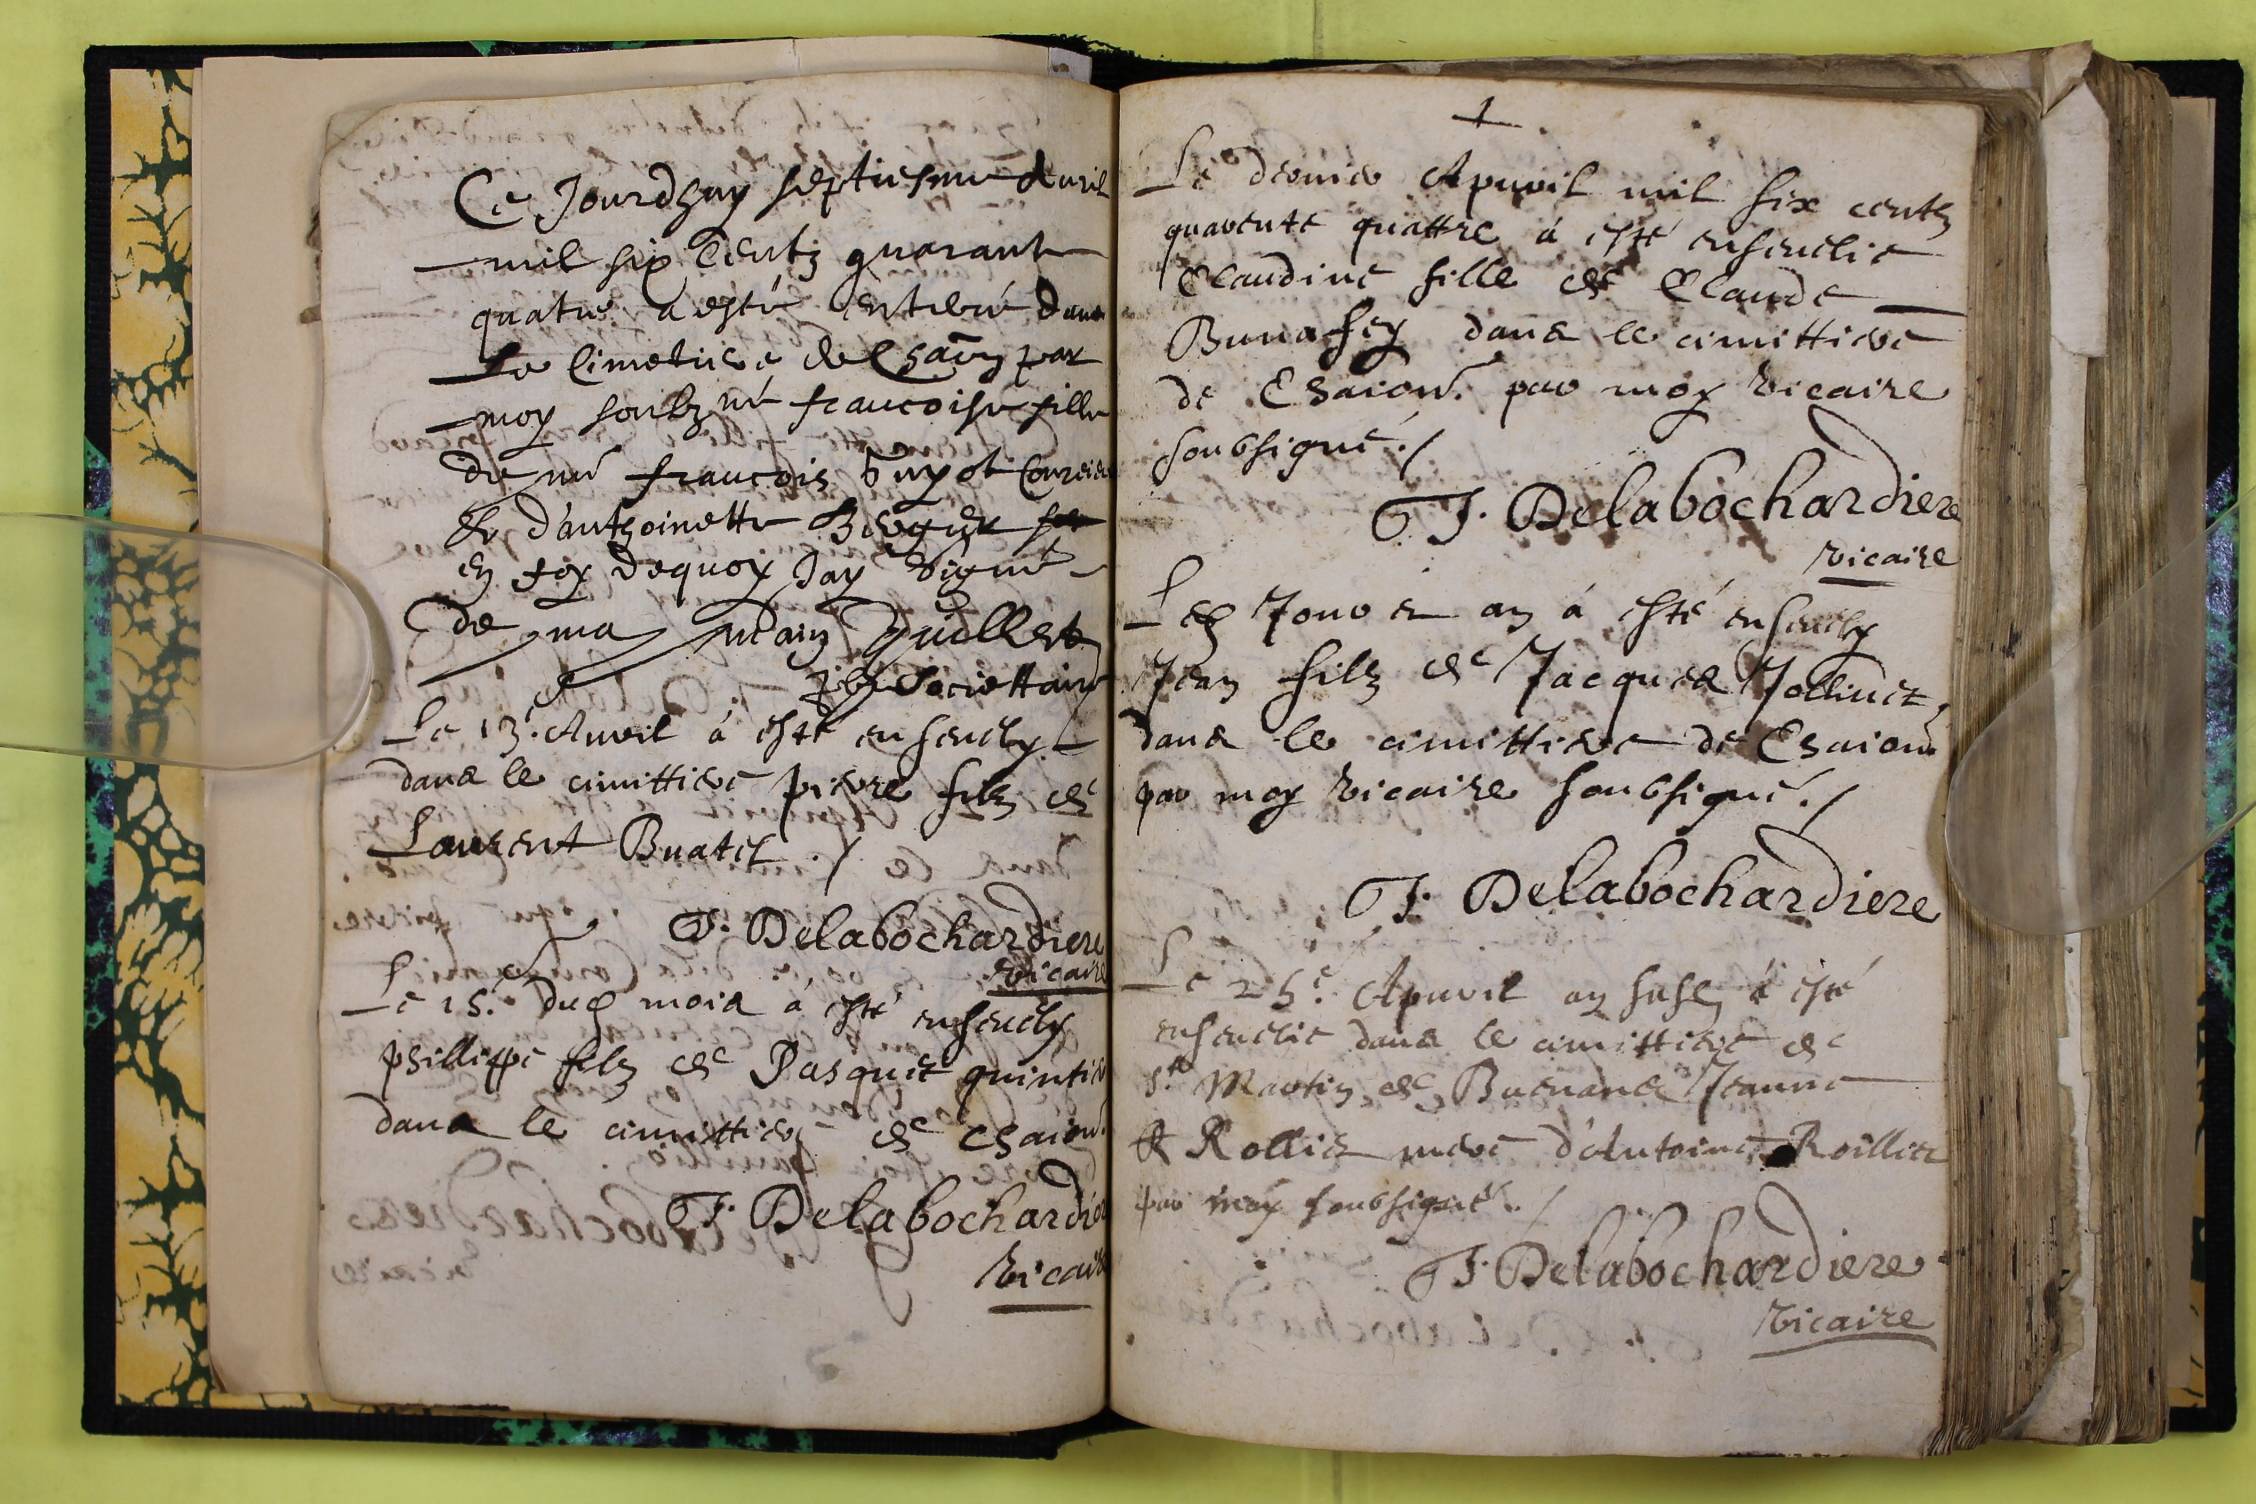 Ce Jourdhuy septiesme Auril
mil six Centz quarant
quatre a esté enterré dans
Le Cimetiere de Chaōn par
moy soubzné francoise fille
de mẽ francois Guyot
& d'anthoinette
en foy dequoy Jay Signé
de ma main Guillet
pbre Societtaire
Le 13.e Auril á esté enseuely
dans le cimittiere pierre filz de
Laurent Buatet ./
T. Delabochardiere
vicaire
Le 15.e dud mois á esté enseuely
phillippe filz de Pasquet quintin
dans le cimittiere de chaion.
T. Delabochardiere
Vicaire
Le dernier Apuril mil six centz
quarente quattre á esté enseuelie
Claudine fille de Claude
Bunafey dans le cimittiere
de Chaion. par moy vicaire
soubsigné ./
T. Delabochardiere
vicaire
Led Jour et an á esté enseuely
Jean filz de Jacques Jollivet,
dans le cimittiere de Chaion
par moy vicaire soubsigné ./
T. Delabochardiere
Le 25.e Apuril an susd á esté
enseuelie dans le cimittiere de
St Martin de Buenans Jeanne
R Rollier mere d'Antoine Roillier
par moy soubsigné ./
T. Delabochardiere
Vicaire